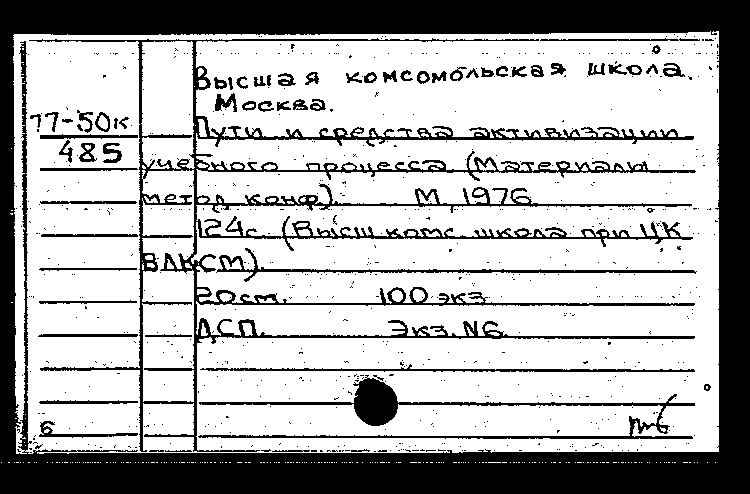 Высшая комсомольская школа.
Москва.
77-50к
485
Пути и средства активизации
учебного процесса (Материалы
метод. конф.). М., 1976.
124с. (Высш. комс. школа при ЦК
ВЛКСМ).
20см. 100 экз.
ДСП. Экз. N6.
6